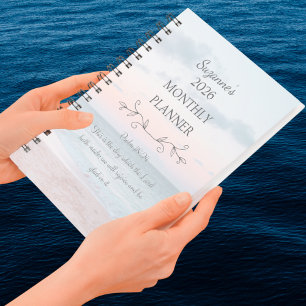 Suzanne's
2026
MONTHLY
PLANNER
Psalm 118:24
This is the day which the Lord
hath made; we will rejoice and be
glad in it.